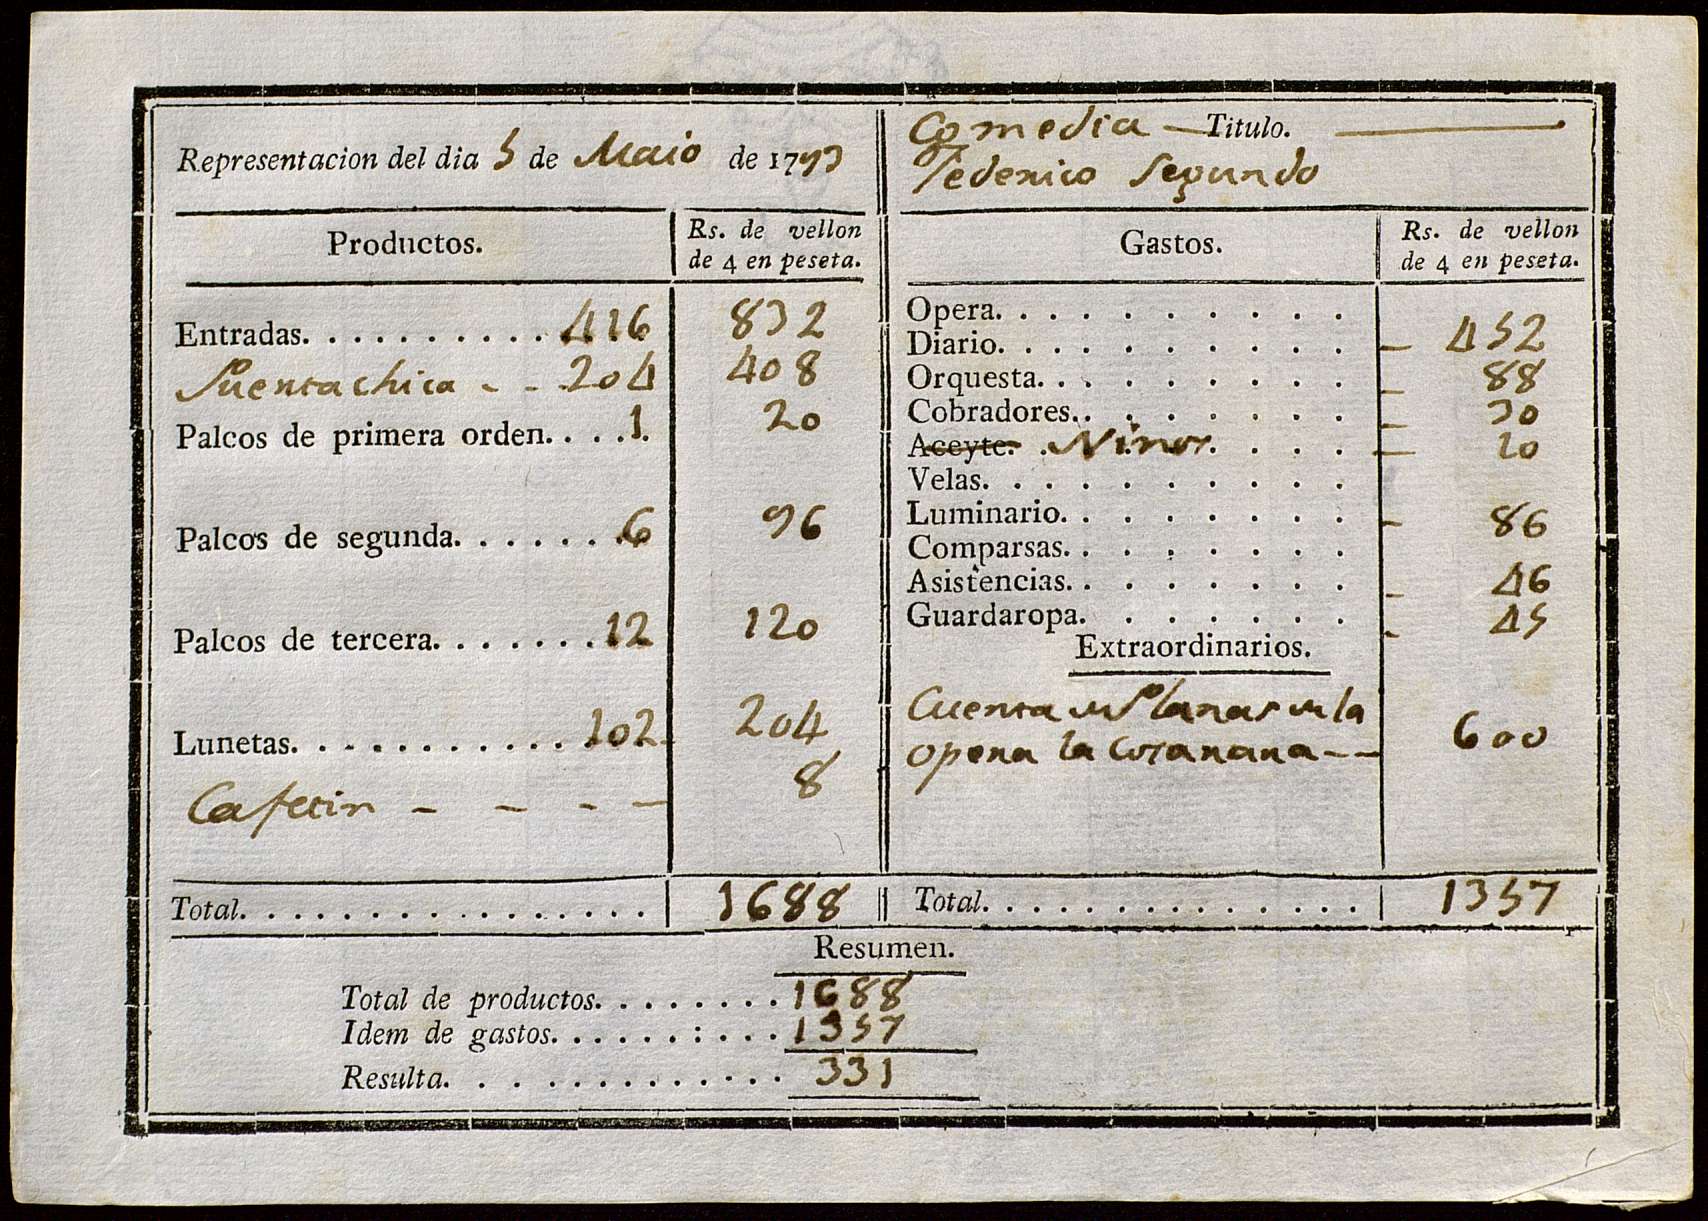 Representacion del dia 5 de Maio de 1793
Comedia — Titulo. —
Federico Segundo
Productos.
Rs. de vellon
de 4 en peseta.
Gastos.
Rs. de vellon
de 4 en peseta.
Entradas. . . . . . . . . . . 416 832
Puerta chica - - 204 408
Palcos de primera orden. . . . . 1 20
Palcos de segunda. . . . . . . . 6 96
Palcos de tercera. . . . . . . . 12 120
Lunetas. . . . . . . . . . . . 102 204
Cafetin - - - - 8
Total. . . . . . . . . . . . . . . . . 1688
Opera. . . . . . . . . . .
Diario. . . . . . . . . . . - 452
Orquesta. . . . . . . . . . - 88
Cobradores. . . . . . . . . - 30
Aceyte. Ninos - 10
Velas. . . . . . . . . . .
Luminario. . . . . . . . . - 86
Comparsas. . . . . . . . .
Asistencias. . . . . . . . . - 46
Guardaropa. . . . . . . . - 45
Extraordinarios.
Cuenta de Planas de la
opera la Cosa rara - - 600
Total. . . . . . . . . . . . . . . 1357
Resumen.
Total de productos. . . . . . . . 1688
Idem de gastos. . . . . . : . . . 1357
Resulta. . . . . . . . . . . . . 331